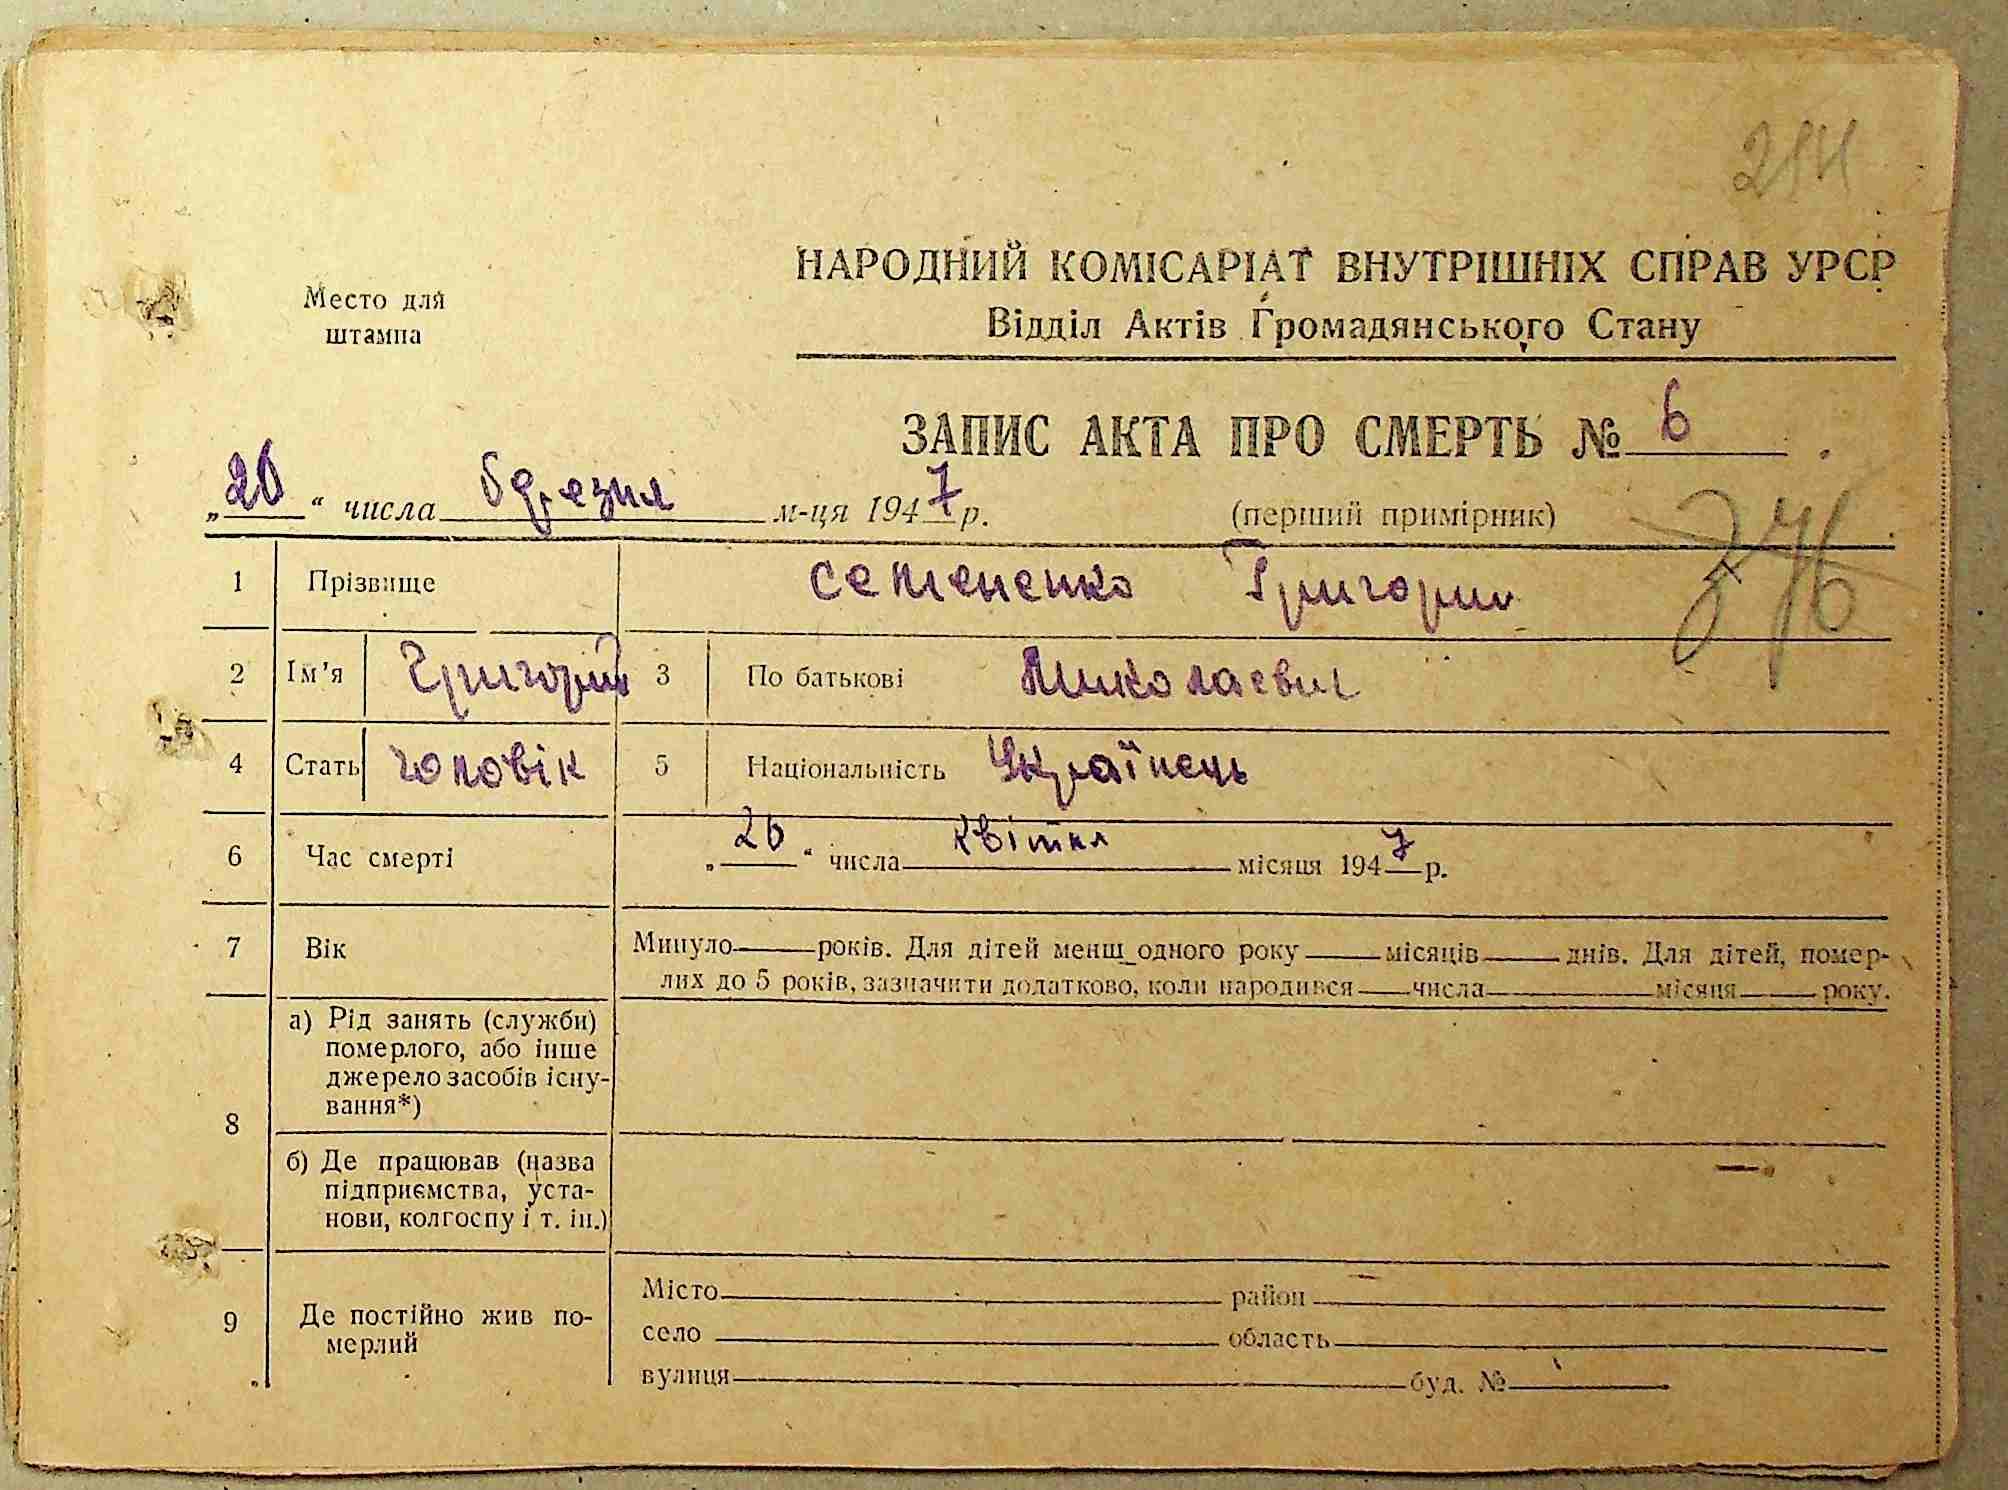 Место для
штампа
НАРОДНИЙ КОМІСАРІАТ ВНУТРІШНІХ СПРАВ УРСР
Відділ Актів Громадянського Стану
ЗАПИС АКТА ПРО СМЕРТЬ № 6
„20“ числа березня м-ця 1947 р. (перший примірник)
1 Прізвище семененко Григорий
2 Ім'я Григорий 3 По батькові Миколаевич
4 Стать чоловік 5 Національність Українець
6 Час смерті „20“ числа квітня місяця 1947 р.
7 Вік Минуло року років. Для дітей менш одного року місяців днів. Для дітей, помер-
лих до 5 років, зазначити додатково, коли народився числа місяця року.
8 а) Рід занять (служби)
померлого, або інше
джерело засобів існу-
вання*)
б) Де працював (назва
підприємства, уста-
нови, колгоспу і т. ін.)
9 Де постійно жив по-
мерлий
Місто район
село область
вулиця буд. №